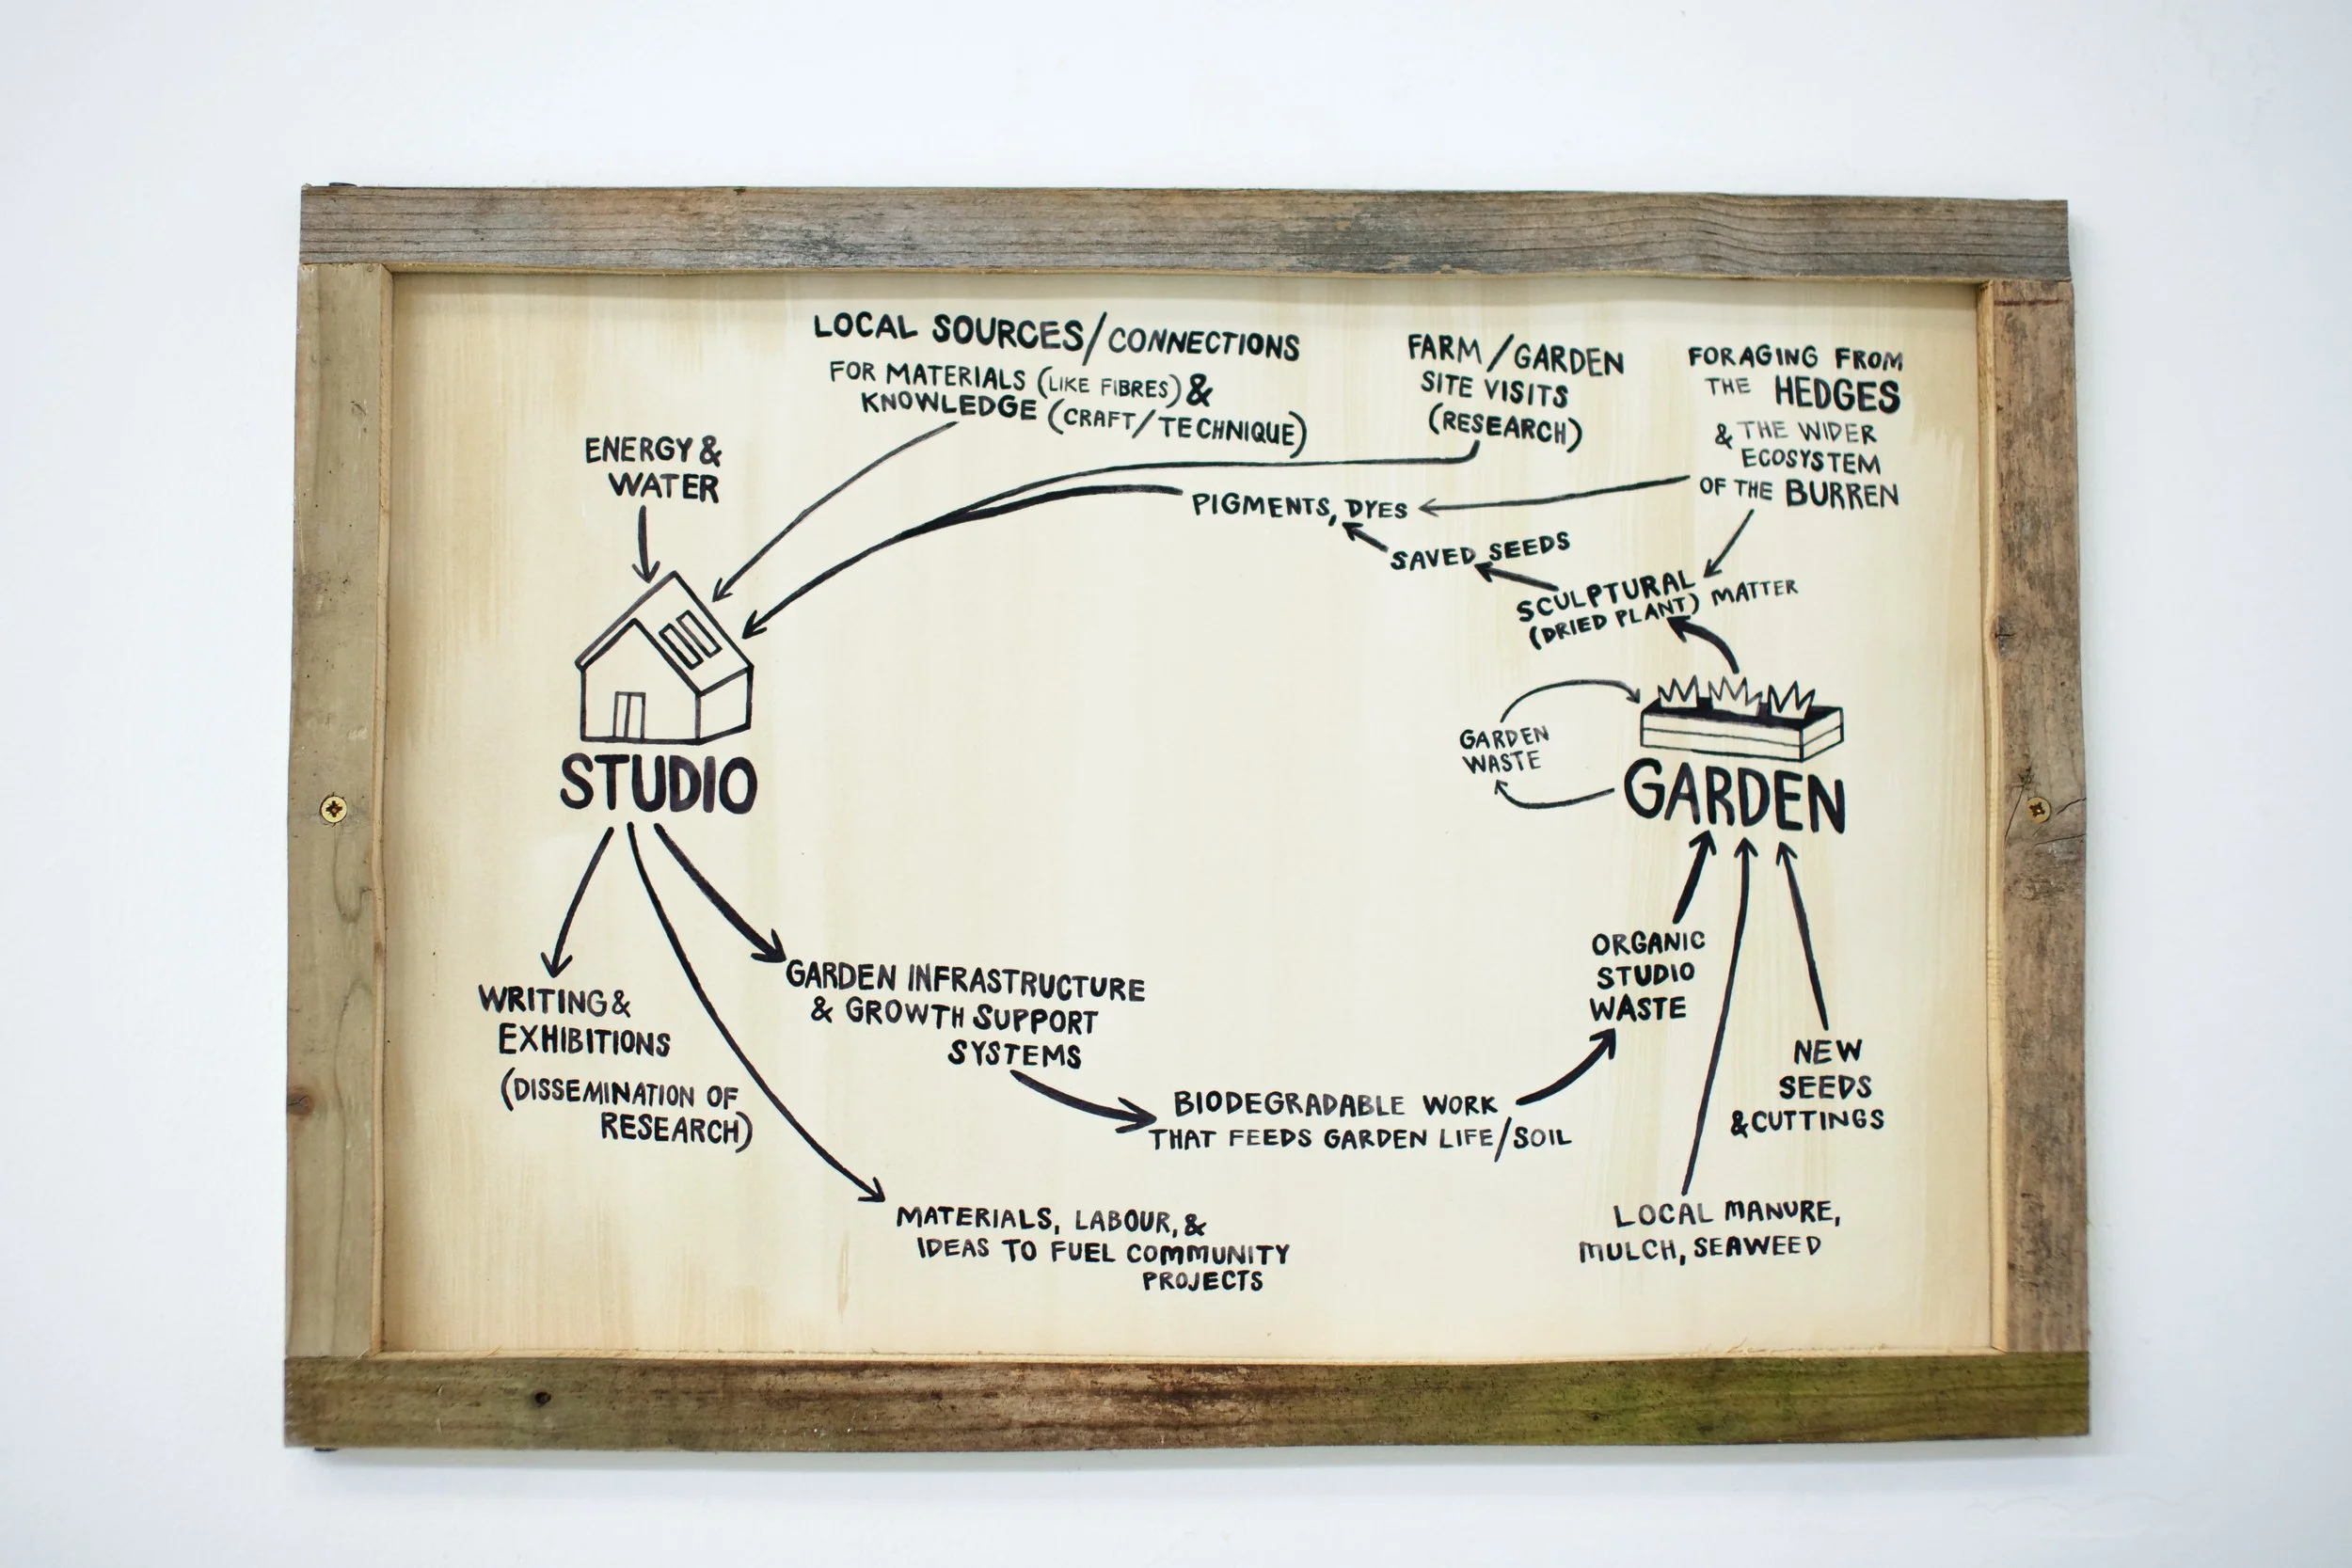 LOCAL SOURCES/CONNECTIONS
FOR MATERIALS (LIKE FIBRES) &
KNOWLEDGE (CRAFT/TECHNIQUE)
FARM/GARDEN
SITE VISITS
(RESEARCH)
FORAGING FROM
THE HEDGES
& THE WIDER
ECOSYSTEM
OF THE BURREN
ENERGY &
WATER
PIGMENTS, DYES
SAVED SEEDS
SCULPTURAL
(DRIED PLANT) MATTER
GARDEN
WASTE
STUDIO
GARDEN
WRITING &
EXHIBITIONS
(DISSEMINATION OF
RESEARCH)
GARDEN INFRASTRUCTURE
& GROWTH SUPPORT
SYSTEMS
BIODEGRADABLE WORK
THAT FEEDS GARDEN LIFE/SOIL
ORGANIC
STUDIO
WASTE
NEW
SEEDS
& CUTTINGS
MATERIALS, LABOUR, &
IDEAS TO FUEL COMMUNITY
PROJECTS
LOCAL MANURE,
MULCH, SEAWEED